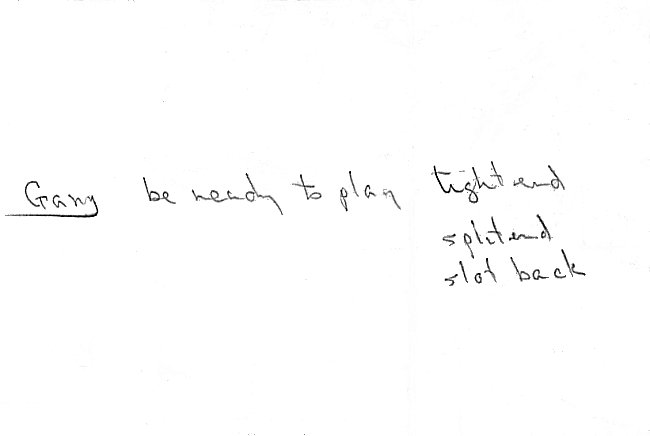 Gary be ready to play tight end
split end
slot back